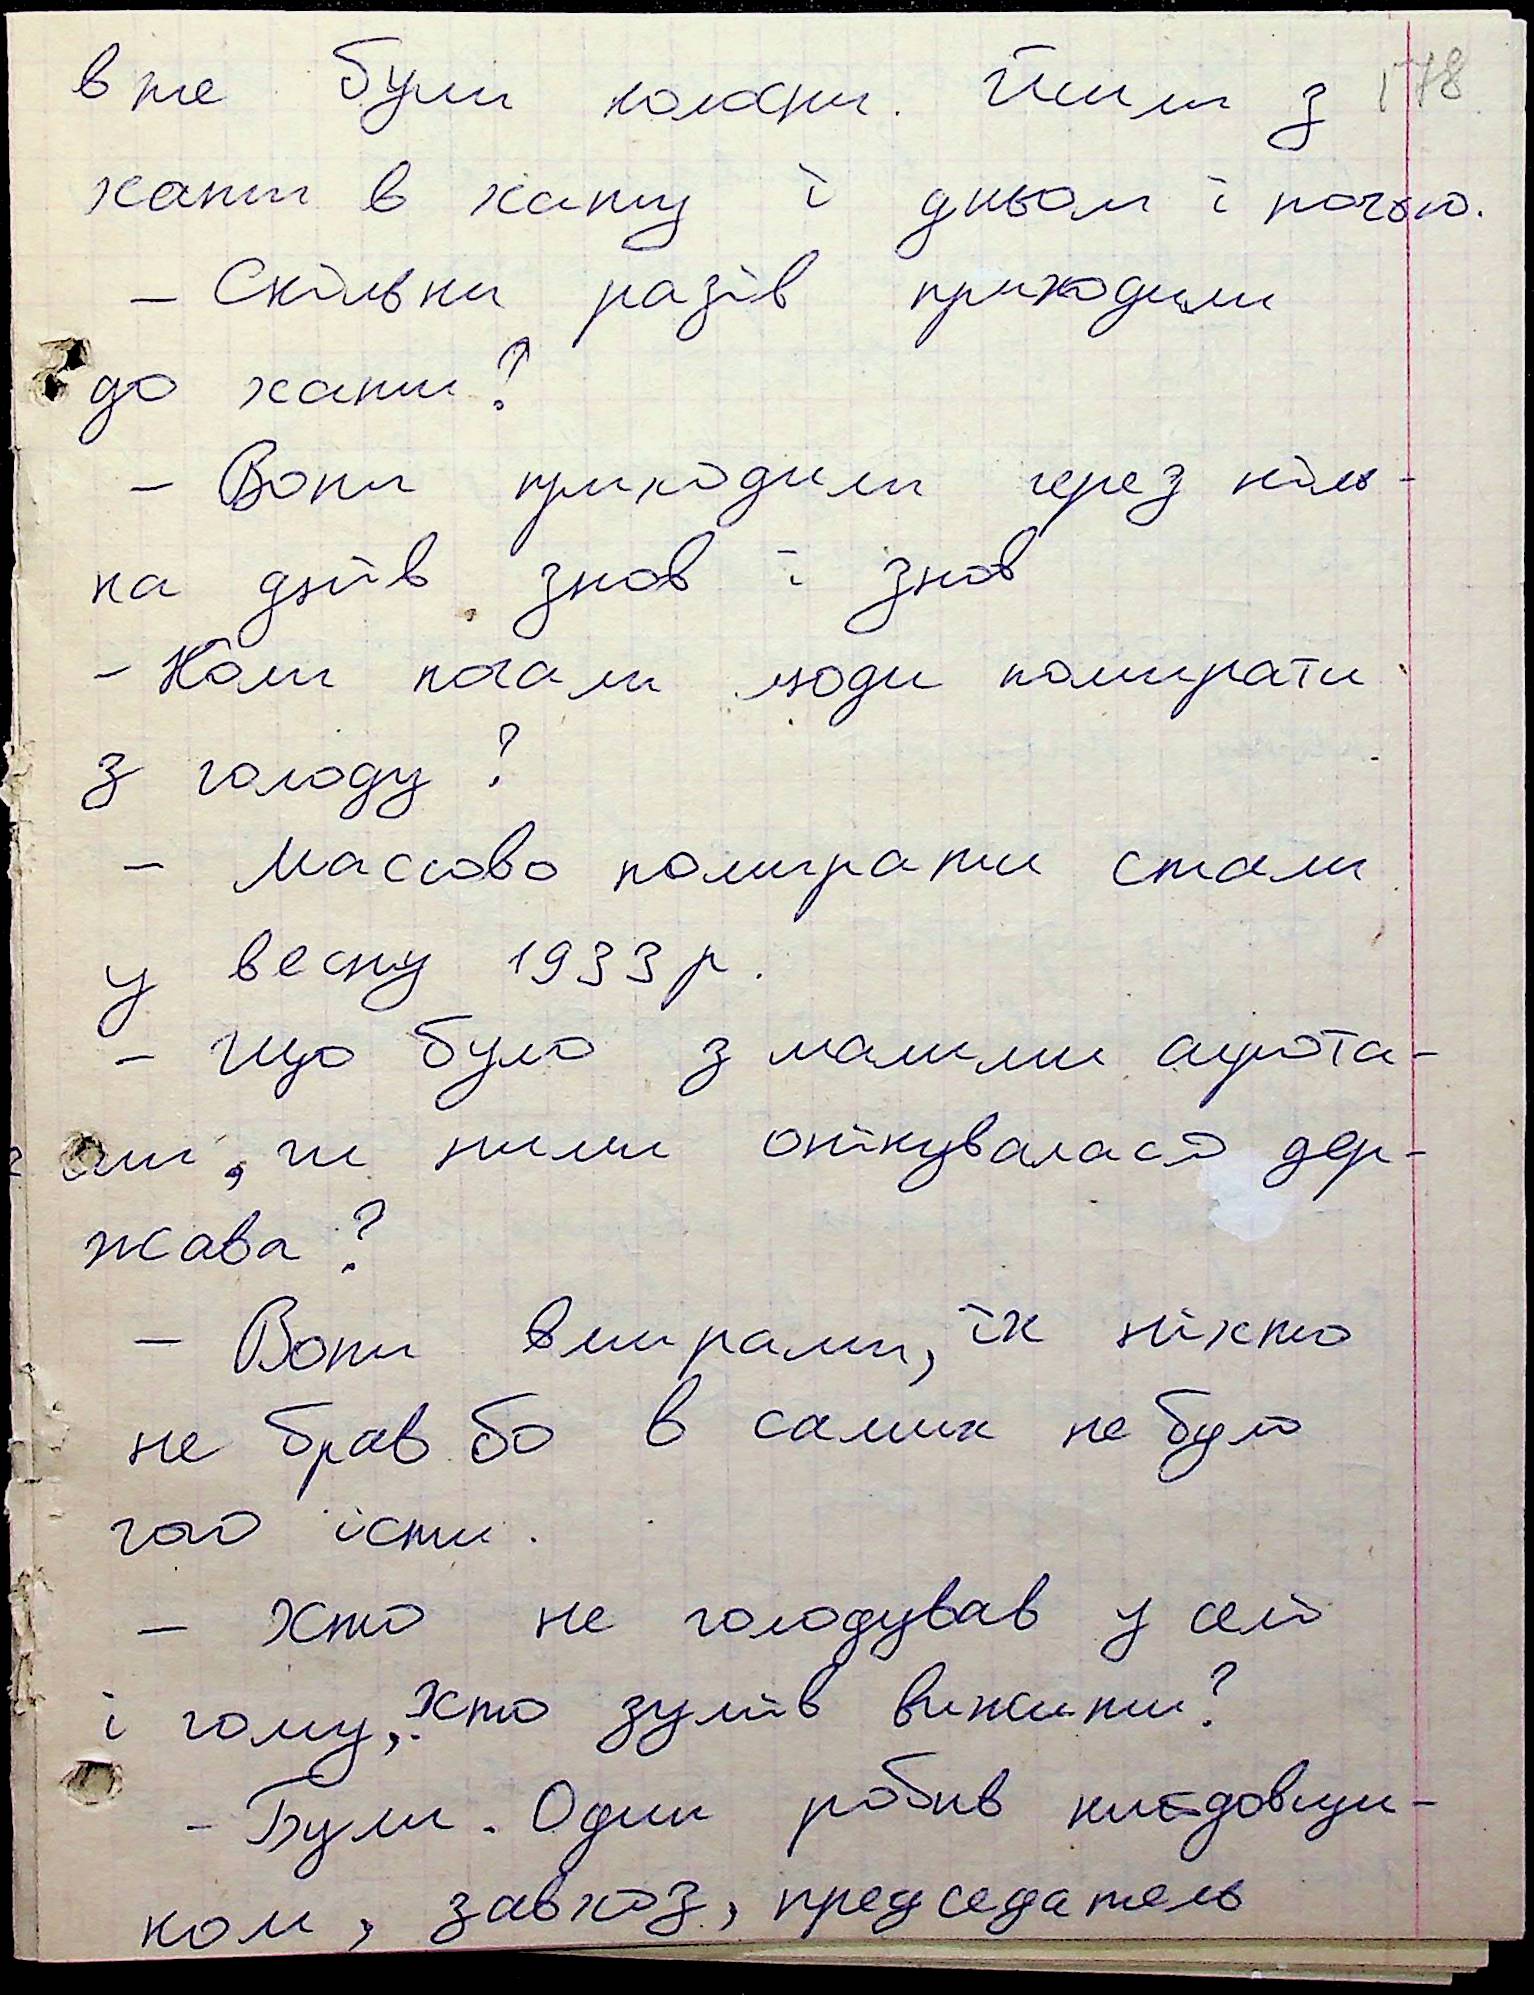 вже були колоски. Йшли з 178
хати в хату і дньом і ночью.
– Скільки разів приходили
до хати?
– Вони приходили через кіль-
ка днів знов і знов
– Коли почали люди помирати
з голоду?
– Массово помирати стали
у весну 1933 р.
– Що було з малими сирота-
ми, чи ними опікувалася дер-
жава?
– Вони вмирали, їх ніхто
не брав бо в самих не було
чого їсти.
– Хто не голодував у селі
і чому, хто зумів вижити?
– Були. Один робив кладовщи-
ком, завхоз, председатель